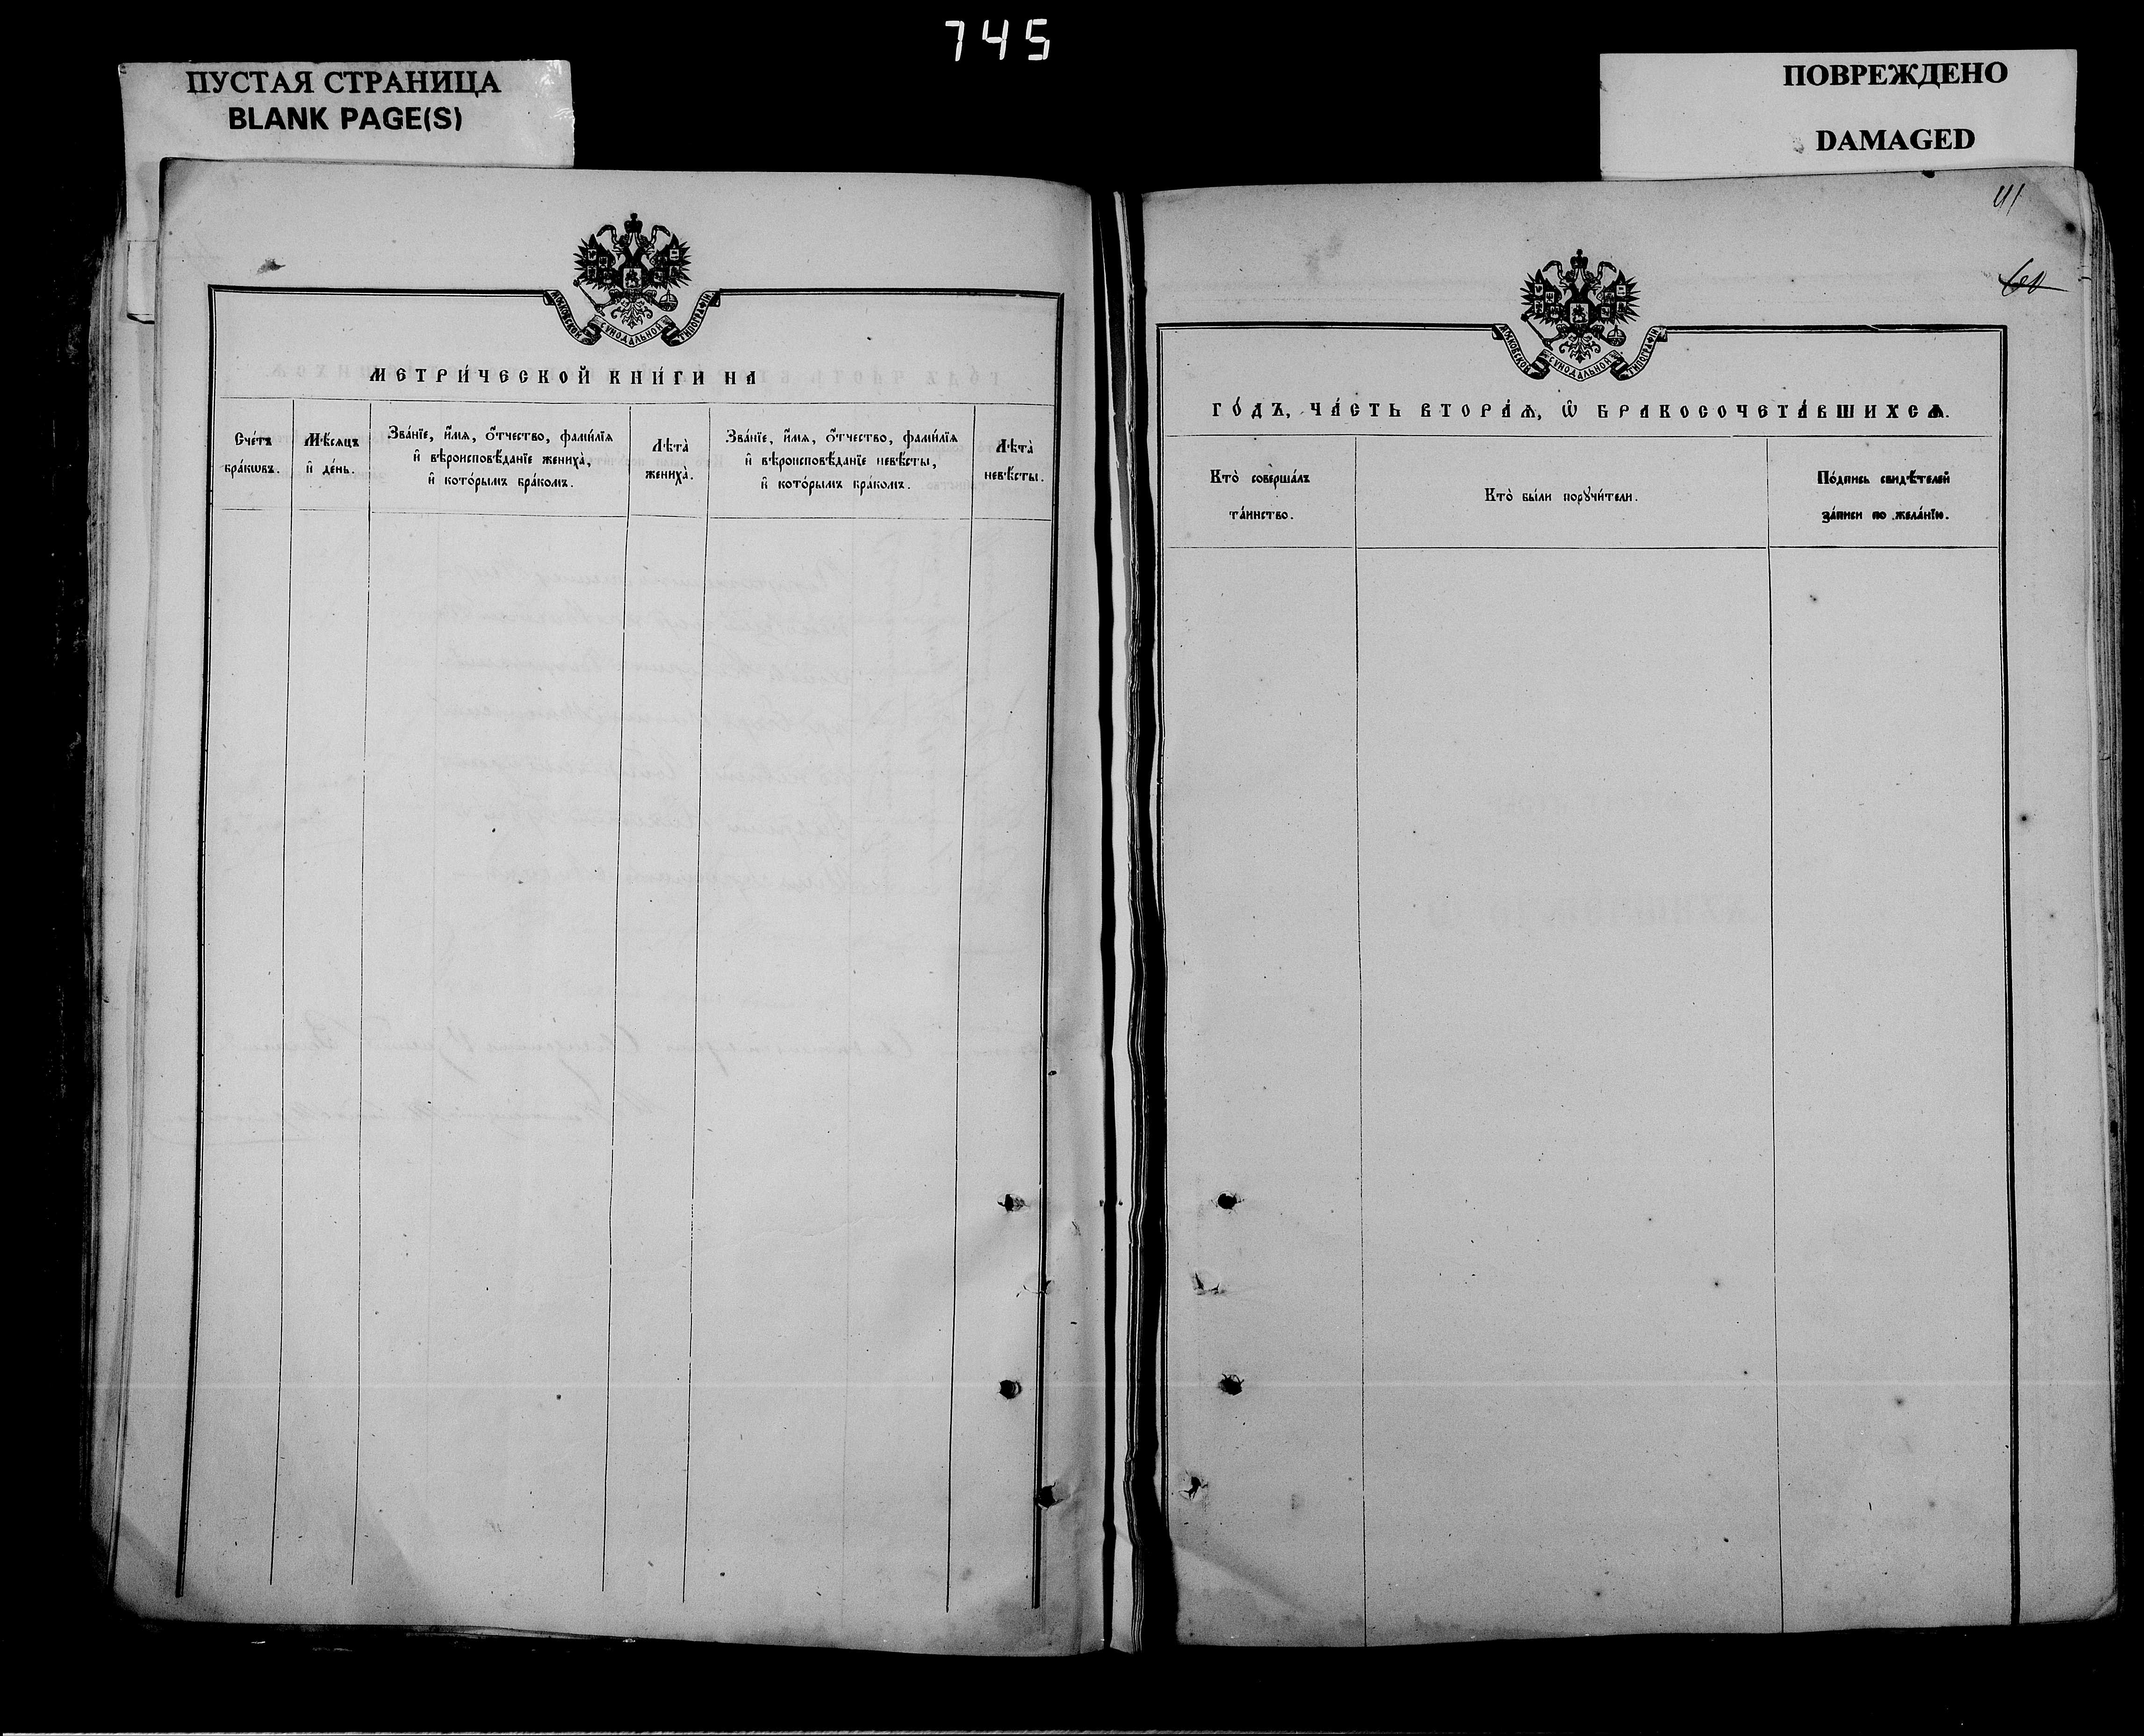 745
ПУСТАЯ СТРАНИЦА
BLANK PAGE(S)
ПОВРЕЖДЕНО
DAMAGED
41
60
МОСКОВСКОЙ СѴНОДАЛЬНОЙ ТИПОГРАФІИ.
МЕТРИ́ЧЕСКОЙ КНИ́ГИ НА
Сче́тъ бра́кѡвъ.
Мѣ́сяцъ и҆ де́нь.
Зва́нїе, и҆́мѧ, ѻ҆́тчество, фами́лїѧ и҆ вѣроисповѣ́данїе жениха̀, и҆ кото́рымъ бра́комъ.
Лѣ́та̀ жениха̀.
Зва́нїе, и҆́мѧ, ѻ҆́тчество, фами́лїѧ и҆ вѣроисповѣ́данїе невѣ́сты, и҆ кото́рымъ бра́комъ.
Лѣ́та̀ невѣ́сты.
МОСКОВСКОЙ СѴНОДАЛЬНОЙ ТИПОГРАФІИ.
ГО́ДЪ, ЧА́СТЬ ВТОРА́Ѧ, Ѡ҆ БРАКОСОЧЕТА́ВШИХСѦ.
Кто̀ соверша́лъ та́инство.
Кто̀ бы́ли порꙋчи́тели.
По́дпись свидѣ́телей за́писи по жела́нїю.